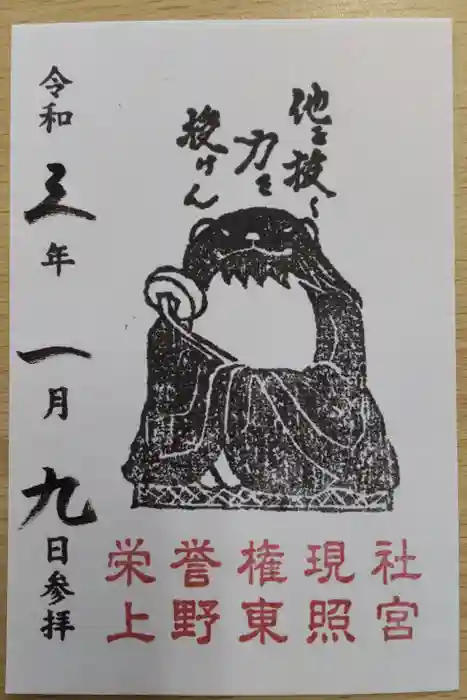 他を抜く
力を
授けん
栄誉権現社
上野東照宮
令和三年一月九日参拝